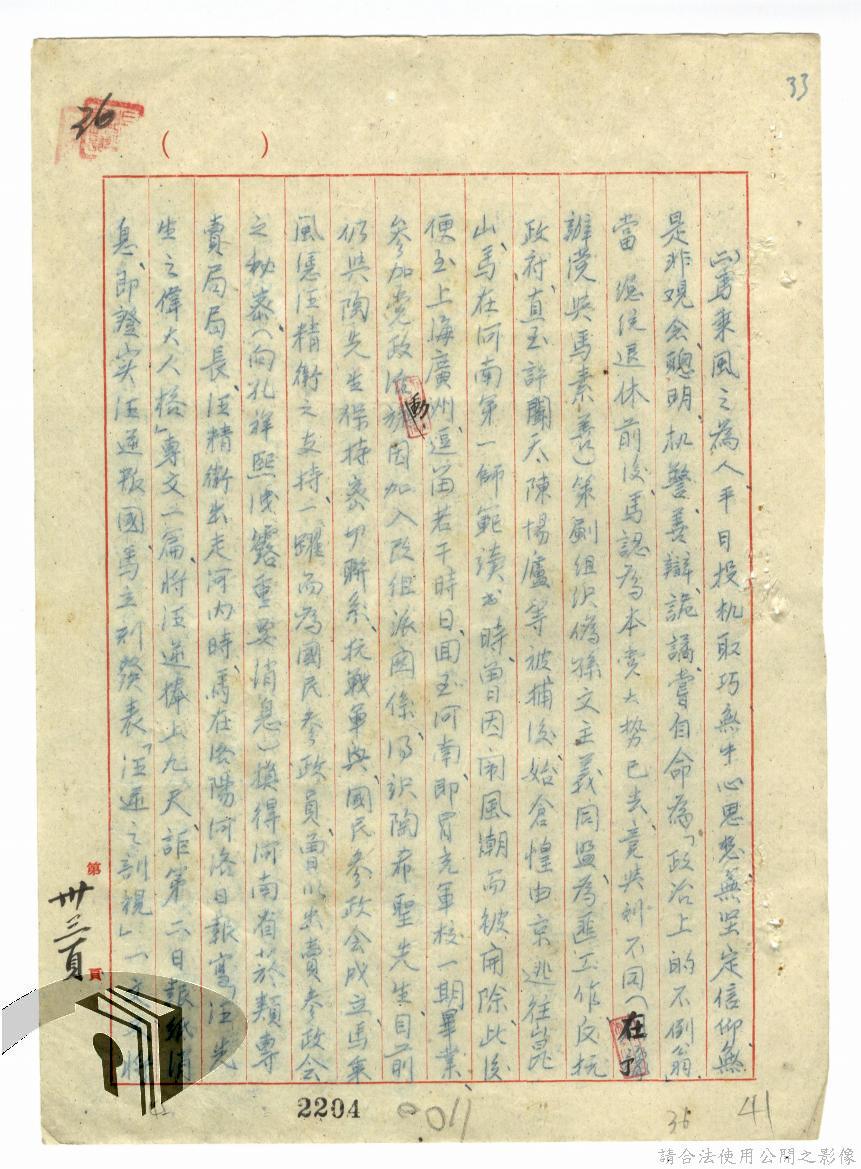 33
36
(　　)
㈡馬乘風之為人、平日投机取巧、無中心思想、無坚定信仰、無
是非观念、聰明、机警、善辯、詭譎、嘗自命為「政治上的不倒翁」
當 總統退休前後、馬認為本党大勢已去、竟與刘不同(在
辦党與馬素善)策劃組织偽孫文主義同盟為匪工作反抗
政府、直至許聞天、陳惕廬等被捕後、始倉惶由京逃往崑
山、馬在河南第一師範讀书時、曾因闹風潮而被開除、此後
便至上海廣州、逗留若干時日、回至河南、即冒充軍校一期畢業、
參加党政活動、因加入改组派関係、得识陶希聖先生、目前
仍與陶先生保持密切聯系、抗戰軍興國民參政会成立、馬乘
風憑汪精衛之支持、一躍而為國民參政員、曾以出賣參政会
之秘密(向孔祥熙洩露重要消息)換得河南省菸類專
賣局局長、汪精衛出走河内時、馬在洛陽河洛日報寫「汪先
生之偉大人格」專文一篇、將汪逆捧上九天、詎第二日報紙消
息、即證实汪逆叛國、馬立刻發表「汪逆之剖視」一文、又將
第
卅三頁
頁
2204
36
41
請合法使用公開之影像